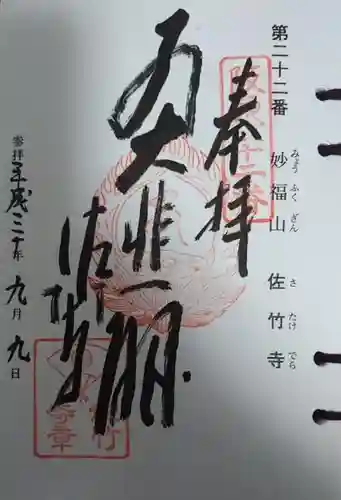 第二十二番 妙福山 佐竹寺
みょう ふく ざん さ たけ でら
奉拝
大悲閣
佐竹寺
参拝 平成三十年 九月 九日